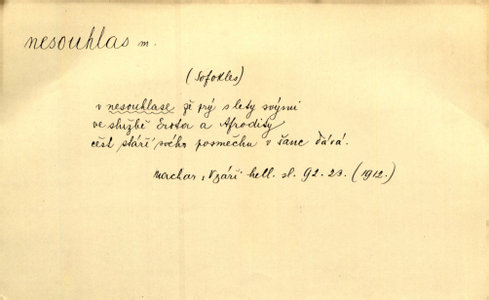 nesouhlas m.
(Sofokles)
v nesouhlase že prý s lety svými
ve službě Erota a Afrodity
čest stáří svého posměchu v šanc dává.
Machar „V záři" hell. sl. 92. 23. (1912.)